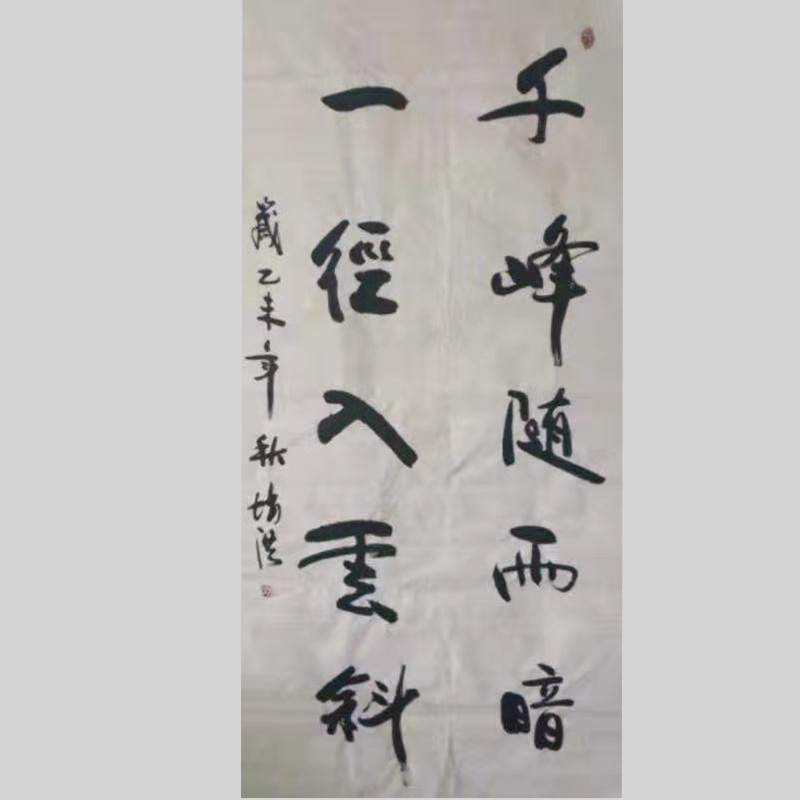 千峰随雨暗
一徑入雲斜
歲乙未年秋